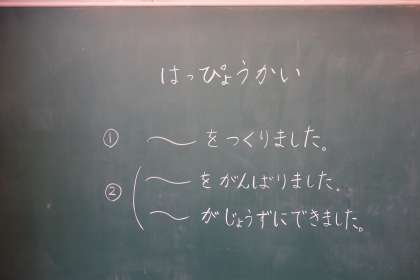 はっぴょうかい
① 〜をつくりました。
② 〜をがんばりました。
〜がじょうずにできました。